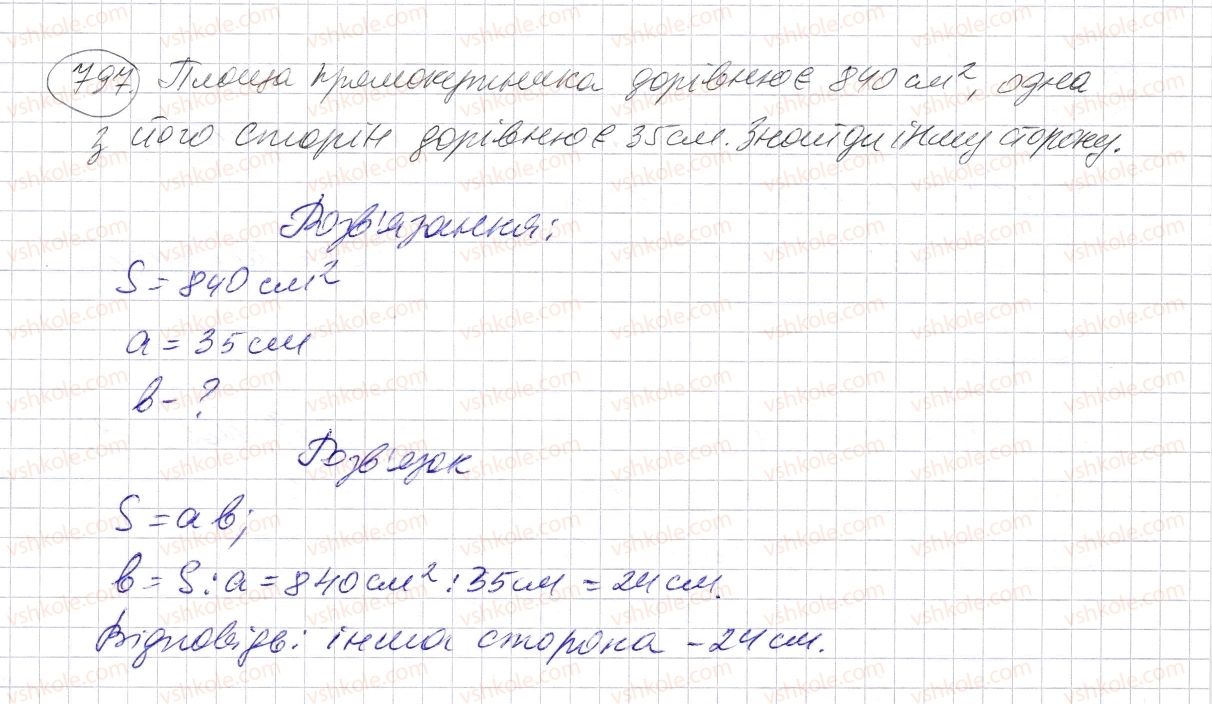 797. Площа прямокутника дорівнює 840 см², одна
з його сторін дорівнює 35 см. Знайди іншу сторону.
Розв'язання:
S = 840 см²
a = 35 см
в - ?
Розв'язок
S = a в;
в = S : a = 840 см² : 35 см = 24 см.
Відповідь: інша сторона - 24 см.
vshkole.com